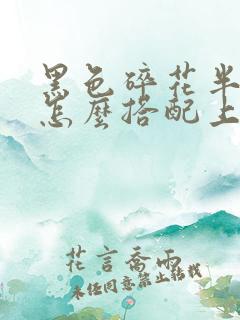 黑色碎花半
怎麼搭配上
花言喬雨
未经同意禁止转载